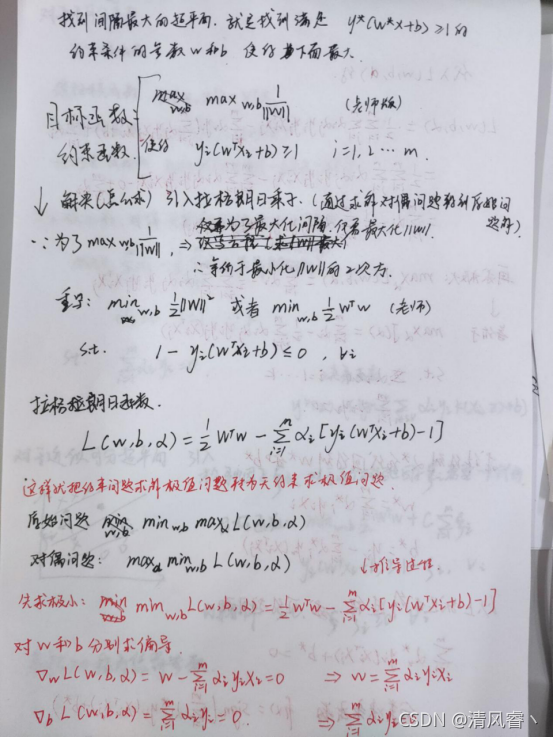 找到间隔最大的超平面,就是找到满足 y*(w*x+b)≥1的
约束条件的参数w和b 使得 下面最大.
目标函数 max w,b 1/||w|| (老师版)
约束函数. 使得 yᵢ(wᵀxᵢ+b)≥1 i=1,2…m.
↓ 解决(怎么求) 引入拉格朗日乘子. (通过求解对偶问题得到原始问题
∵为了 max w,b 1/||w||, ⇒ 最大化间隔, 仅需最大化||w||.
∴等价于最小化||w||的2次方.
重写: min w,b ½||w||² 或者 min w,b ½wᵀw (老师)
s.t. 1-yᵢ(wᵀxᵢ+b)≤0, ∀i
拉格朗日函数.
L(w,b,α)=½wᵀw-∑ᵢ₌₁ᵐ αᵢ[yᵢ(wᵀxᵢ+b)-1]
这样就把约束问题求解极值问题转为无约束求极值问题.
原始问题 min w,b max α L(w,b,α)
对偶问题: max α min w,b L(w,b,α) ↓推导过程.
先求极小: min w,b L(w,b,α)=½wᵀw-∑ᵢ₌₁ᵐ αᵢ[yᵢ(wᵀxᵢ+b)-1]
对w和b分别求偏导.
∇w L(w,b,α)=w-∑ᵢ₌₁ᵐ αᵢyᵢxᵢ=0 ⇒ w=∑ᵢ₌₁ᵐ αᵢyᵢxᵢ
∇b L(w,b,α)=∑ᵢ₌₁ᵐ αᵢyᵢ=0. ⇒ ∑ᵢ₌₁ᵐ αᵢyᵢ
CSDN @清风睿丶